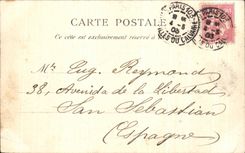 CARTE POSTALE
Ce côté est exclusivement réservé à
Mr Eug. Reymond
38, Avenida de la Libertad
San Sebastian
(Espagne)